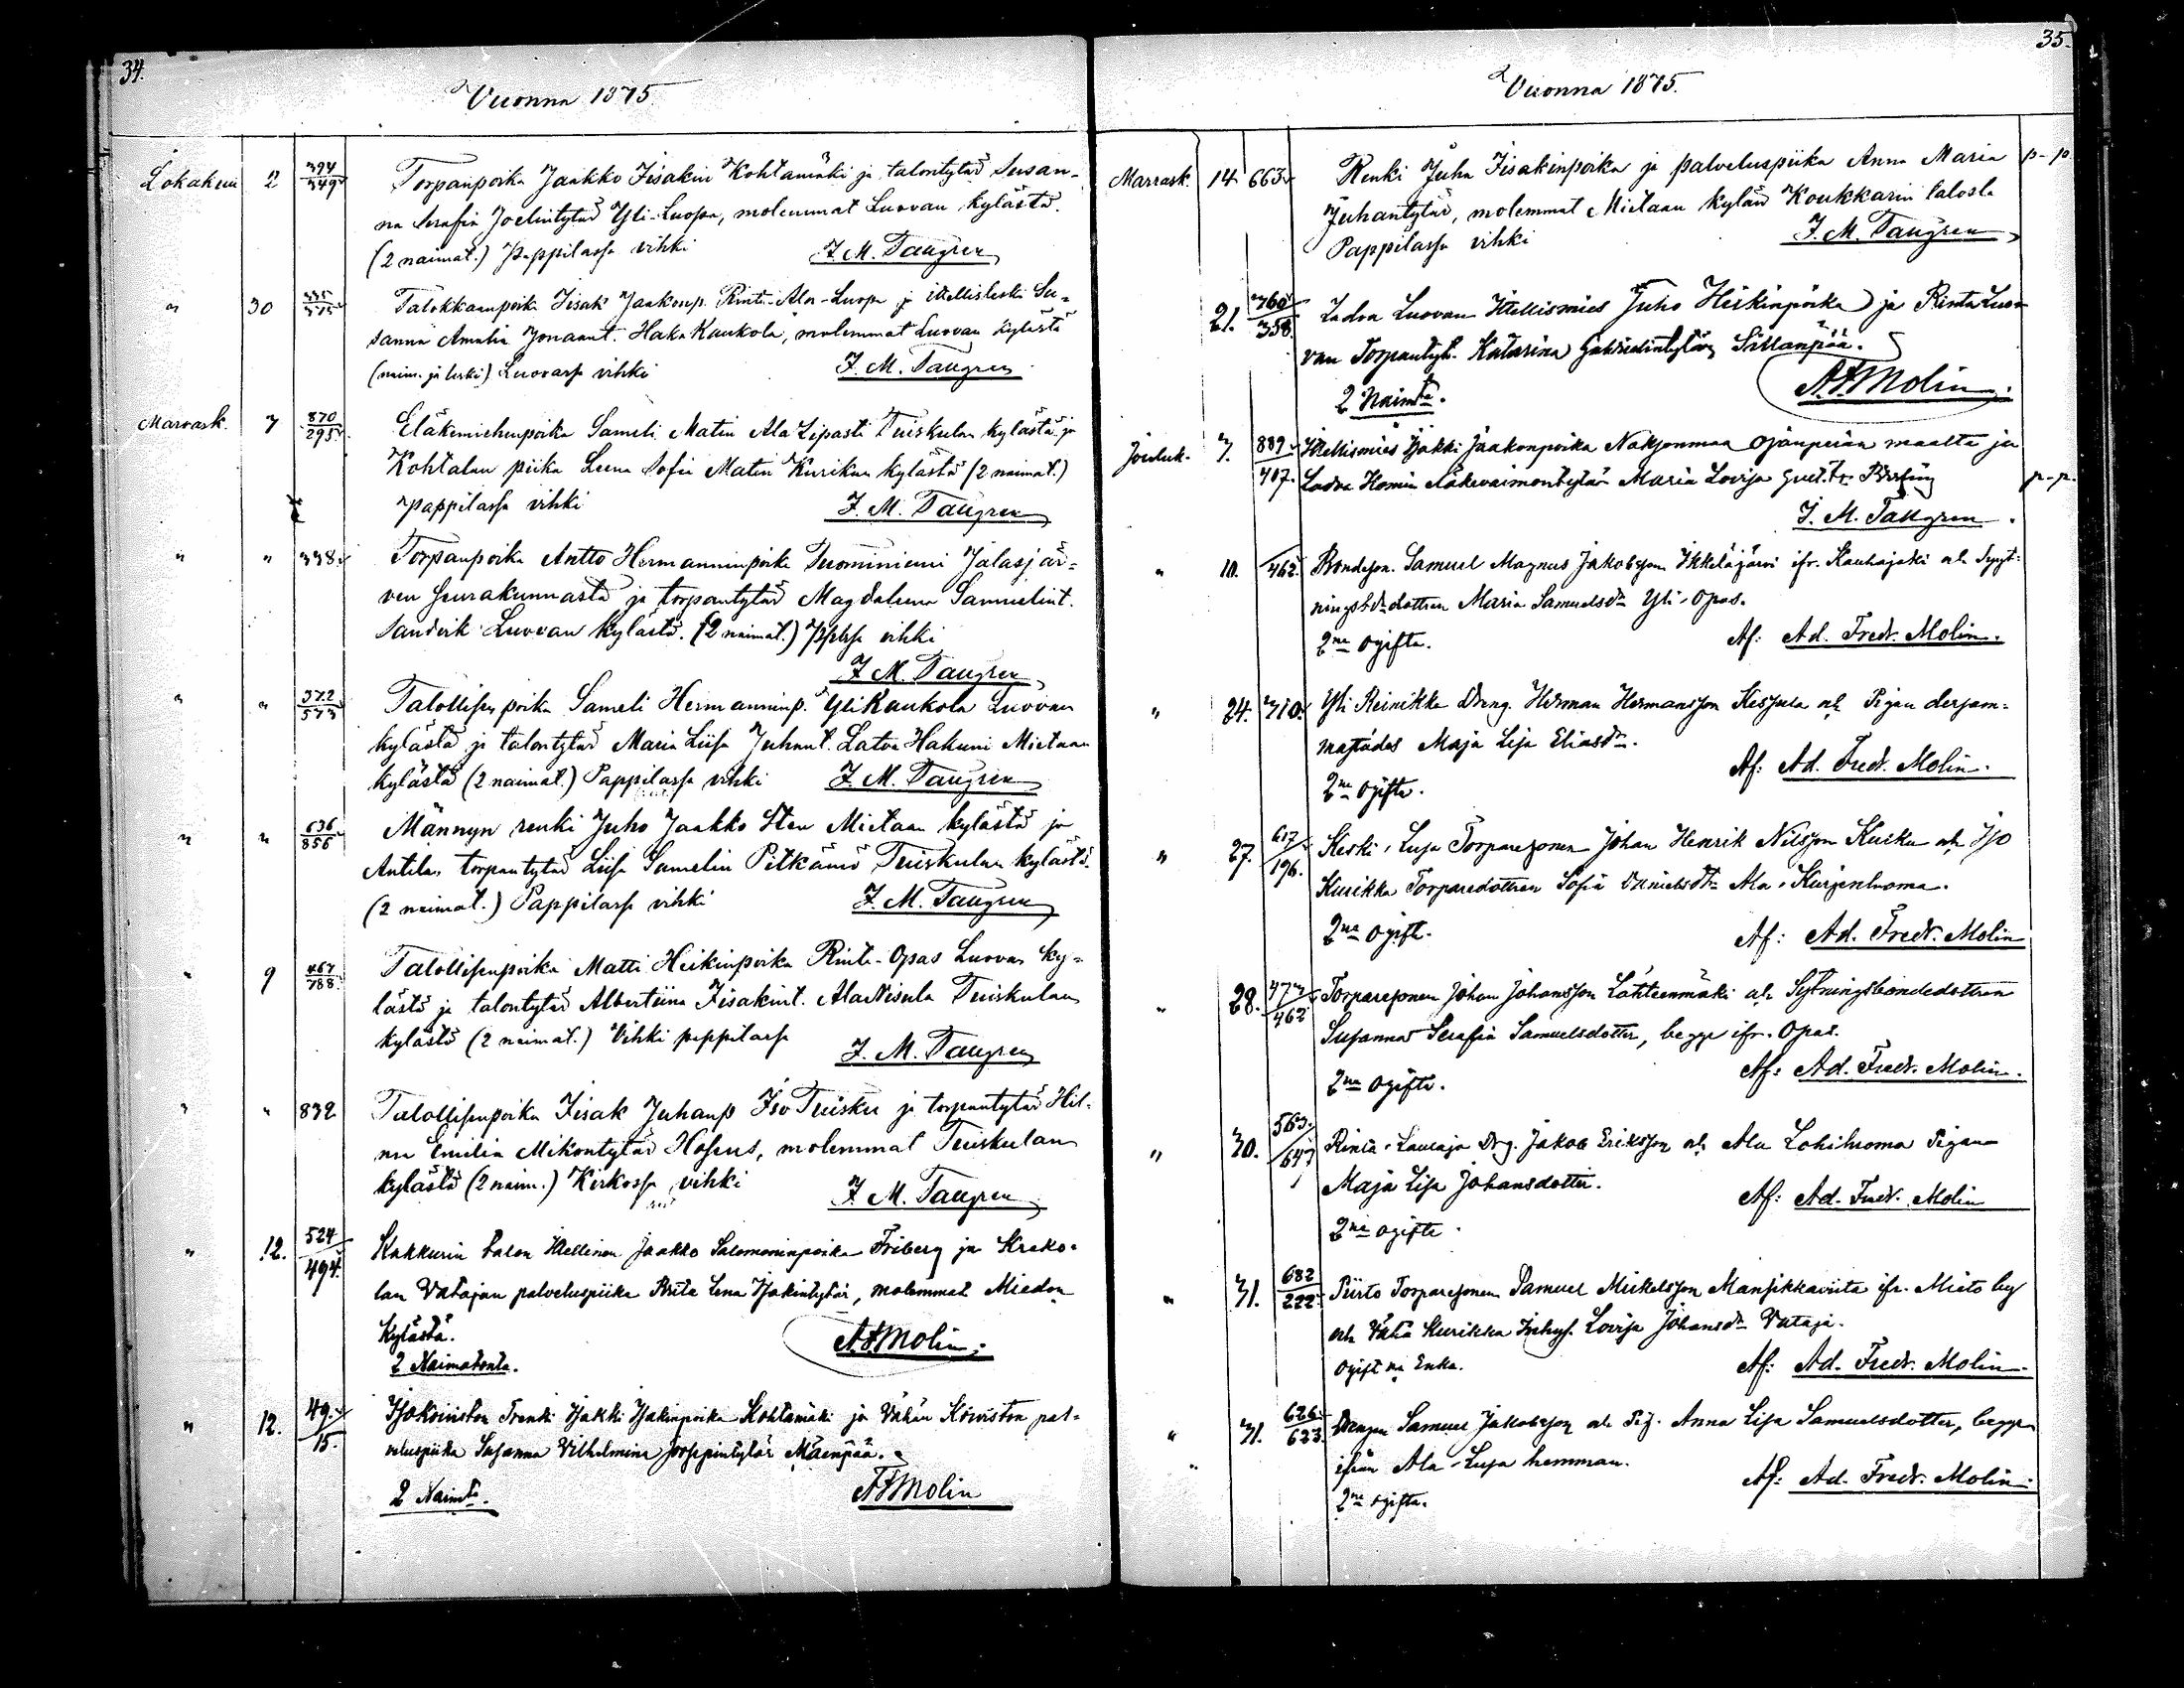 34.
Vuonna 1875
Lokakuu 2 394/349 Torpanpoika Jaakko Iisakin Kohtamäki ja talontytär Susan-
na Serafia Joelintytär Yli-Luopa, molemmat Luovan kylästä.
(2 naimat.) Pappilassa vihki J. M. Tangren
" 30 335/375 Talokkaanpoika Iisak Jaakonp. Rinta-Ala-Luopa ja itellisleski Su-
sanna Amalia Jonaant. Haka Kaukola, molemmat Luovan kylästä
(naim. ja leski) Luovassa vihki J. M. Tangren
Marrask. 7 870/295 Eläkemiehenpoika Sameli Matin Ala Lipasti Tuiskulan kylästä ja
Kohtalan piika Leena Sofia Matin Kurikan kylästä (2 naimat.)
pappilassa vihki J. M. Tangren
" " 338 Torpanpoika Antto Hermanninpoika Tuominiemi Jalasjär-
ven seurakunnasta ja torpantytär Magdaleena Samuelint.
Sandvik Luovan kylästä. (2 naimat.) Pplssa vihki
J. M. Tangren
" " 372/573 Talollisen poika Sameli Hermanninp. Yli Kaukola Luovan
kylästä ja talontytär Maria Liisa Juhant. Latva Hakuni Mietaan
kylästä (2 naimat.) Pappilassa vihki J. M. Tangren
" " 636/856 Männyn renki Juho Jaakko Sten Mietaan kylästä ja
Antilan torpantytär Liisa Samelin Pitkämö Tuiskulan kylästä.
(2 naimat.) Pappilassa vihki J. M. Tangren
" 9 467/788 Talollisenpoika Matti Heikinpoika Rinta-Opas Luovan ky-
lästä ja talontytär Albertiina Iisakint. Ala Nisula Tuiskulan
kylästä (2 naimat.) Vihki pappilassa J. M. Tangren
" " 832 Talollisenpoika Iisak Juhanp Iso Tuisku ja torpantytär Hil-
ma Emilia Mikontytär Hoseus, molemmat Tuiskulan
kylästä (2 naim.) Kirkossa vihki J. M. Tangren
" 12. 524/494 Kakkurin talon Itellinen Jaakko Salomoninpoika Friberg ja Kreko-
lan Vatajan palveluspiika Priita Lena Isakintytär, molemmat Miedon
Kylästä. A. F. Molin.
2 Naimatonta.
" 12. 49./15. Isokoiviston Trenki Isakki Isakinpoika Kohtamäki ja Vähän Koiviston pal-
veluspiika Susanna Vilhelmina Josppintytär Mäenpää.
2 Naimta. A F Molin
35.
Vuonna 1875.
Marrask. 14 663 Renki Juha Iisakinpoika ja palveluspiika Anna Maria p-p.
Juhantytär, molemmat Mietaan kylän Koukkarin talosta
Pappilassa vihki J. M. Tangren
21. 360/358. Ladva Luovan Itellismies Juho Heikinpoika ja Rinta Luo-
van Torpantyt. Katarina Gabrielintytär Sillanpää.
2 Naimta. A. F. Molin.
Jouluk. 7. 889/407. Itellismies Isakki Jaakonpoika Nakjonmaa Ojanperän maalta ja
Ladva Homin eläkevaimontytär Maria Lovisa Gust.tr p-p.
J. M. Tallgren.
" 10. /462. Bondeson. Samuel Magnus Jakobsson Ikkeläjärvi ifr. Kauhajoki och Sytt-
ningsb.dottren Maria Samuelsdr Yli-Opas.
2ne ogifta. Af: Ad. Fredr. Molin.
" 24. 710. Yli Reinikka Dreng. Herman Hermansson Kesseula och Pigan dersam-
mastädes Maja Lisa Eliasdr.
2ne ogifta. Af: Ad. Fredr. Molin.
" 27. 617/196. Keski-Luopa Torparesonen Johan Henrik Nilsson Kuiku och Iso
Kurikka Torparedottren Sofia Danielsdr Ala-Kurjenluoma.
2ne ogift. Af: Ad. Fredr. Molin
" 28. 473/462 Torparesonen Johan Johansson Lähteenmäki och Sytningsbondedottren
Susanna Serafia Samuelsdotter, begge ifr. Opas.
2ne ogifta. Af: Ad. Fredr. Molin.
" 30. 563./647 Rinta-Lauraja Drg. Jakob Eriksson och Ala Lohiluoma Pigan
Maja Lisa Johansdotter.
2ne ogifte. Af: Ad. Fredr. Molin
" 31. 682/222 Piirto Torparesonen Samuel Mickelsson Mansikkaviita ifr. Mieto by
och Vähä Kurikka Inhys. Lovisa Johansdr Vataja.
Ogift o. Enka. Af: Ad. Fredr. Molin.
" 31. 626./623. Drengen Samuel Jakobsson och Pig. Anna Lisa Samuelsdotter, begge
ifrån Ala-Luopa hemman.
2ne ogifta. Af: Ad. Fredr. Molin.